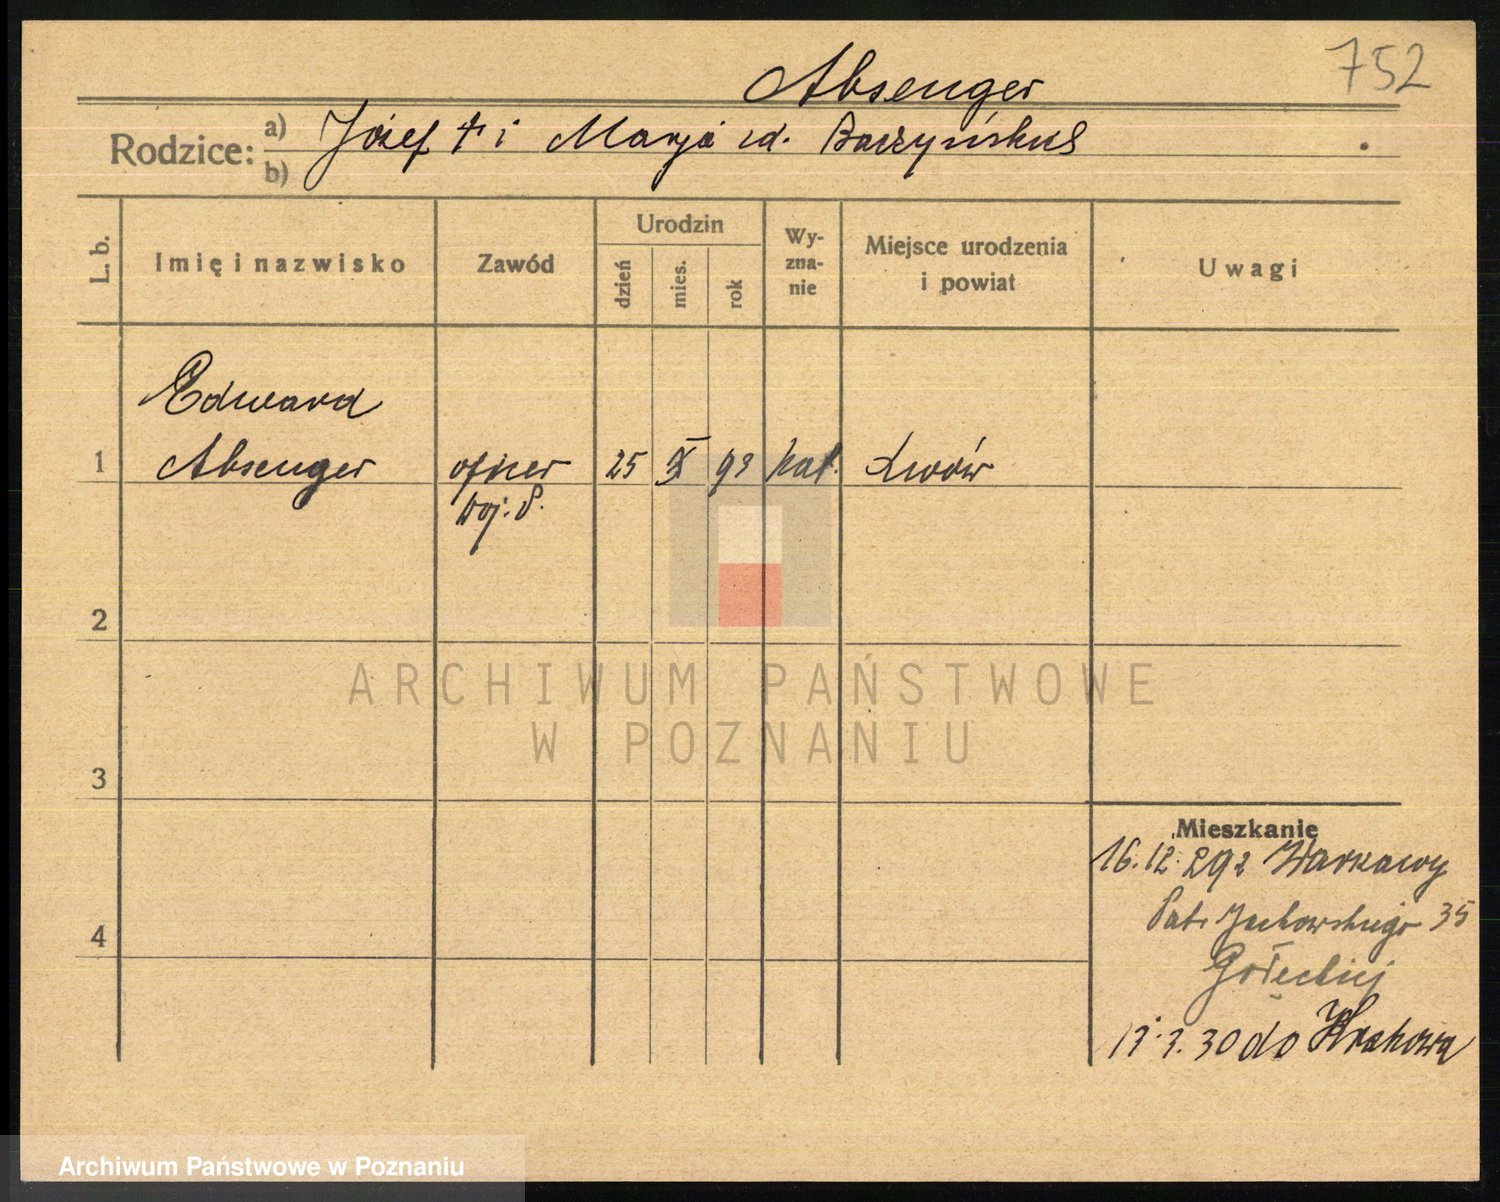 752
Absenger
Rodzice: a) Józef † i Marja zd. Baczyńskich
b)
L. b. Imię i nazwisko Zawód Urodzin dzień mies. rok Wy-zna-nie Miejsce urodzenia i powiat Uwagi
Edward
1 Absenger oficer 25 X 93 kat. Lwów
woj. P.
2
ARCHIWUM PAŃSTWOWE
W POZNANIU
3
Mieszkanie
16.12. 29 z Warszawy
Patr. Jackowskiego 35
4
13.3.30 do Krakowa
Archiwum Państwowe w Poznaniu